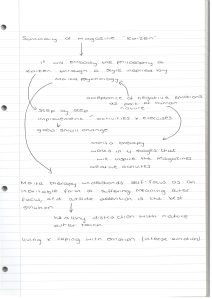 Summary of magazine 'Kaizen'
it will embody the philosophy of
Kaizen through a style inspired by
Morita Psychology
acceptance of negative emotions
as part of human
nature
step by step
improvement
activities & exercises
good small change
morita therapy
works in 4 stages that
will inspire the magazines
creative activities
Morita therapy understands self-focus as an
inevitable form of suffering meaning outer
focus and outside attention is the best
solution
healing distraction with nature
outer touch
living & coping with emotion (intense emotion)